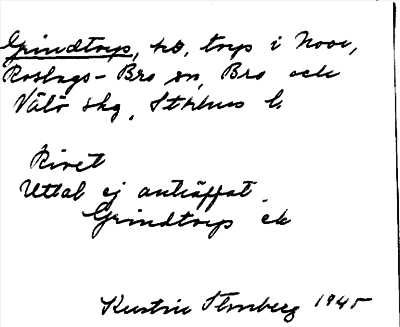 Grindtorp, hö, torp i Nove,
Roslags-Bro sn, Bro och
Vätö skg, Sthlms l.
Rivet
Uttal ej anträffat.
Grindtorp ek
Kerstin Stenberg 1945